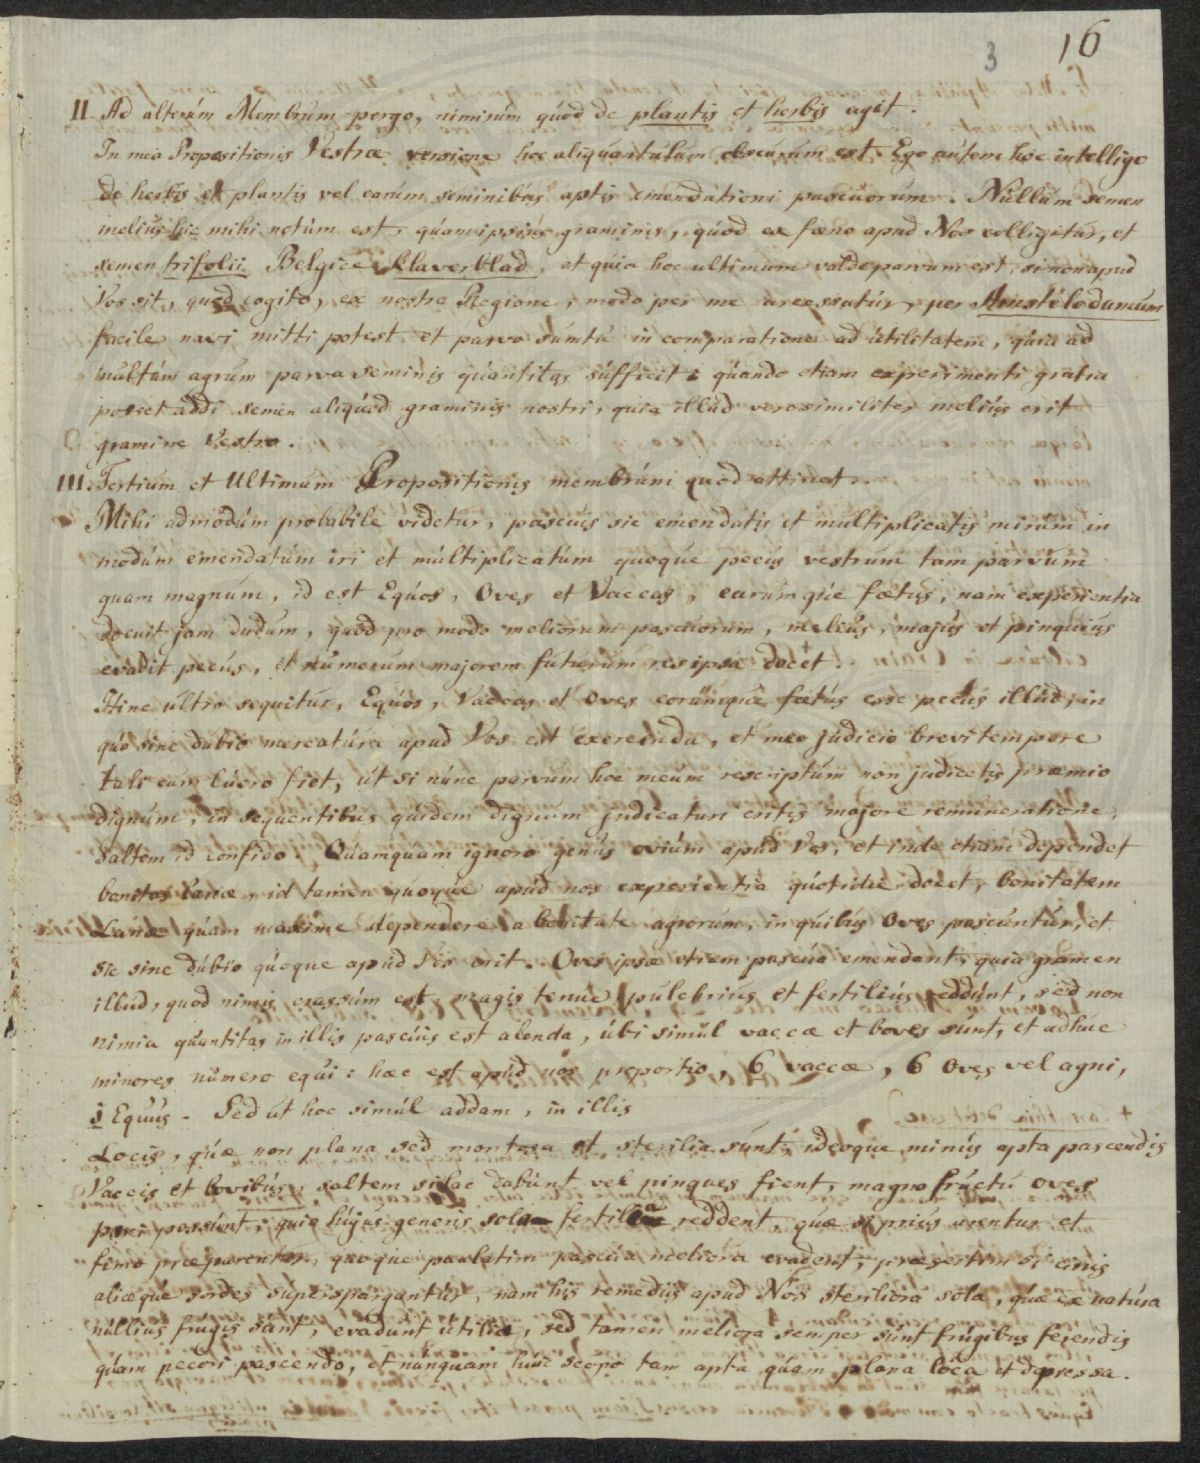 3 16
II. Ad alterúm Membrum pergo, nimirúm qúod de plantis et herbis agit.
In mea Propositionis Vestræ versione hoc aliquantulum obscúrum est. Ego aútem hoc intelligo
de herbis et plantis vel earúm seminibús aptis emendationi pascuorum. Núllúm semen
meliús hic mihi notúm est, qúam ipsiús graminis, qúod ex fæno apud Nos colligetur, et
semen trifolii Belgice klaverblad, et quia hoc ultimum valde parvum est, si non apud
Vos sit, quod cogito, ex nostra Regione, modo per me arcessatúr, per Amstélodamum
facile navi mitti potest et parvo súmtu in comparatione ad útilitatem, qúia ad
múltúm agrúm parva seminis qúantitas súfficit: qúando etiam experimenti gratia
posset addi semen aliqúod graminis nostri, quia illúd verosimiliter meliús erit
gramine Vestro.
III. Tertium et Ultimum Propositionis membrúm quod attinet.
Mihi admodúm probabile videtur, pascuis sic emendatis et multiplicatis mirúm in
modúm emendatúm iri et múltiplicatúm quoque pecús vestrum tam parvúm
quam magnum, id est Eqúos, Oves et Vaccas, earúmqúe fœtús, nam experientia
docuit jam dudum, quod pro modo meliorum pascúorúm, meliús, majús et pinguiús
evadit pecús, et númerum majorem futurúm res ipsa docet.
Hinc últro sequitur, Eqúos, Vaccas et Oves eorúmque fœtús esse pecús illúd, in
qúo sine dubio mercatúra apud Vos est exercenda, et meo júdicio brevi tempore
tali cum lúcro fiet, út si núnc parvum hoc meum rescriptúm non judicetis præmio
dignúm, in sequentibús qúidem dignum júdicaturi eritis majore remúneratione,
saltem id confido. Qúamquam ignoro genús oviúm apúd Vos, et inde etiam dependet
bonitas lanæ, id tamen quoque apúd nos experientia qúotidie docet, bonitatem
Lanæ qúam maxime dependere a bonitate agrorum, in qúibús Oves pascúntúr, et
sic sine dúbio qúoque apúd Vos erit. Oves ipsæ etiam pascua emendant, quia gramen
illud, quod nimis crassúm est, magis tenue, pulchriús et fertiliús reddúnt, sed non
nimia qúantitas in illis pascúis est alenda, úbi simúl vaccæ et boves sunt, et adhúc
minores número equi: hæc est apúd nos proportio, 6 vaccæ, 6 Oves vel agni,
1 Equús. Sed út hoc simúl addam, in illis
Locis, qúæ non plana sed montosa et sterilia súnt, ideoque minús apta pascendis
Vaccis et bovibús, saltem si lac dabúnt vel pingues fient, magno frúctú oves
pasci possúnt, quia hújus generis sola fertilia reddent, qúæ si priús arentur et
fimo præparentúr, quoque paulatim pascúa meliora evadent, præsertim si cinis
aliæque sordes súperspargantúr, nam his remediis apud Nos steriliora sola, qúæ ex natúra
núllius frúgis súnt, evadunt útilia, sed tamen meliora semper súnt frúgibus ferendis
qúam pecori pascendo, et núnquam húic scopo tam apta qúam plana loca et depressa.